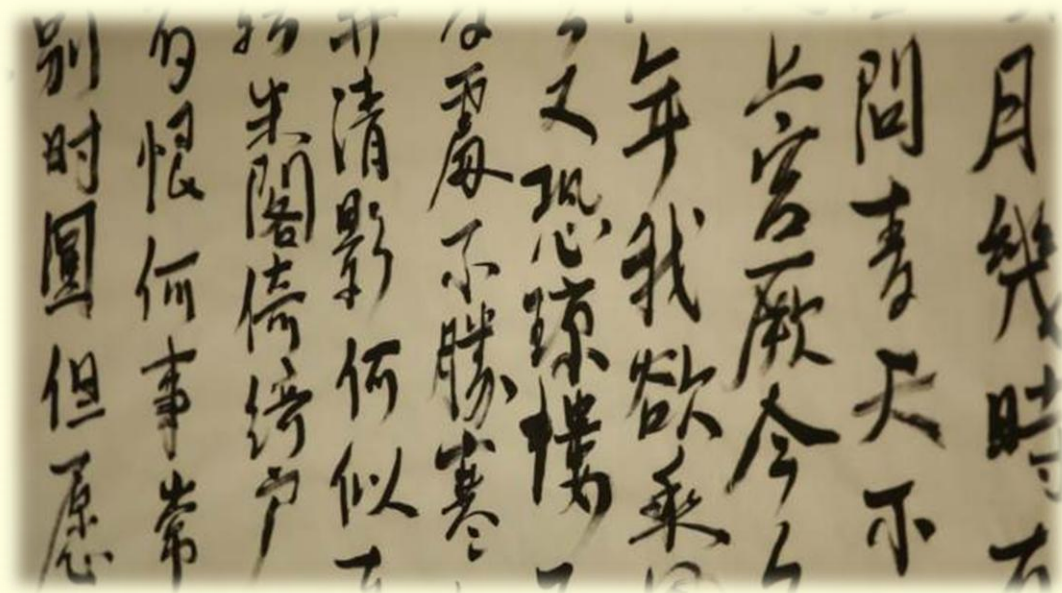 月幾時有
問青天不
上宫厥今夕
年我欲乘風
又恐琼樓
處不勝寒
弄清影何似在
轉朱閣倚綺户
有恨何事常
别时圓但愿